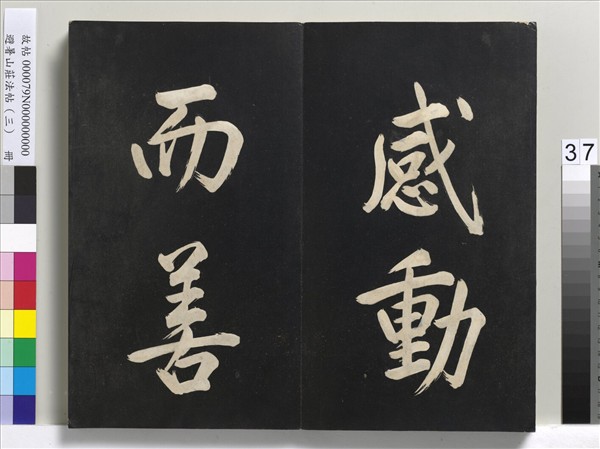 感動
而善
故帖 000079N000000000
避暑山莊法帖（三） 冊
37